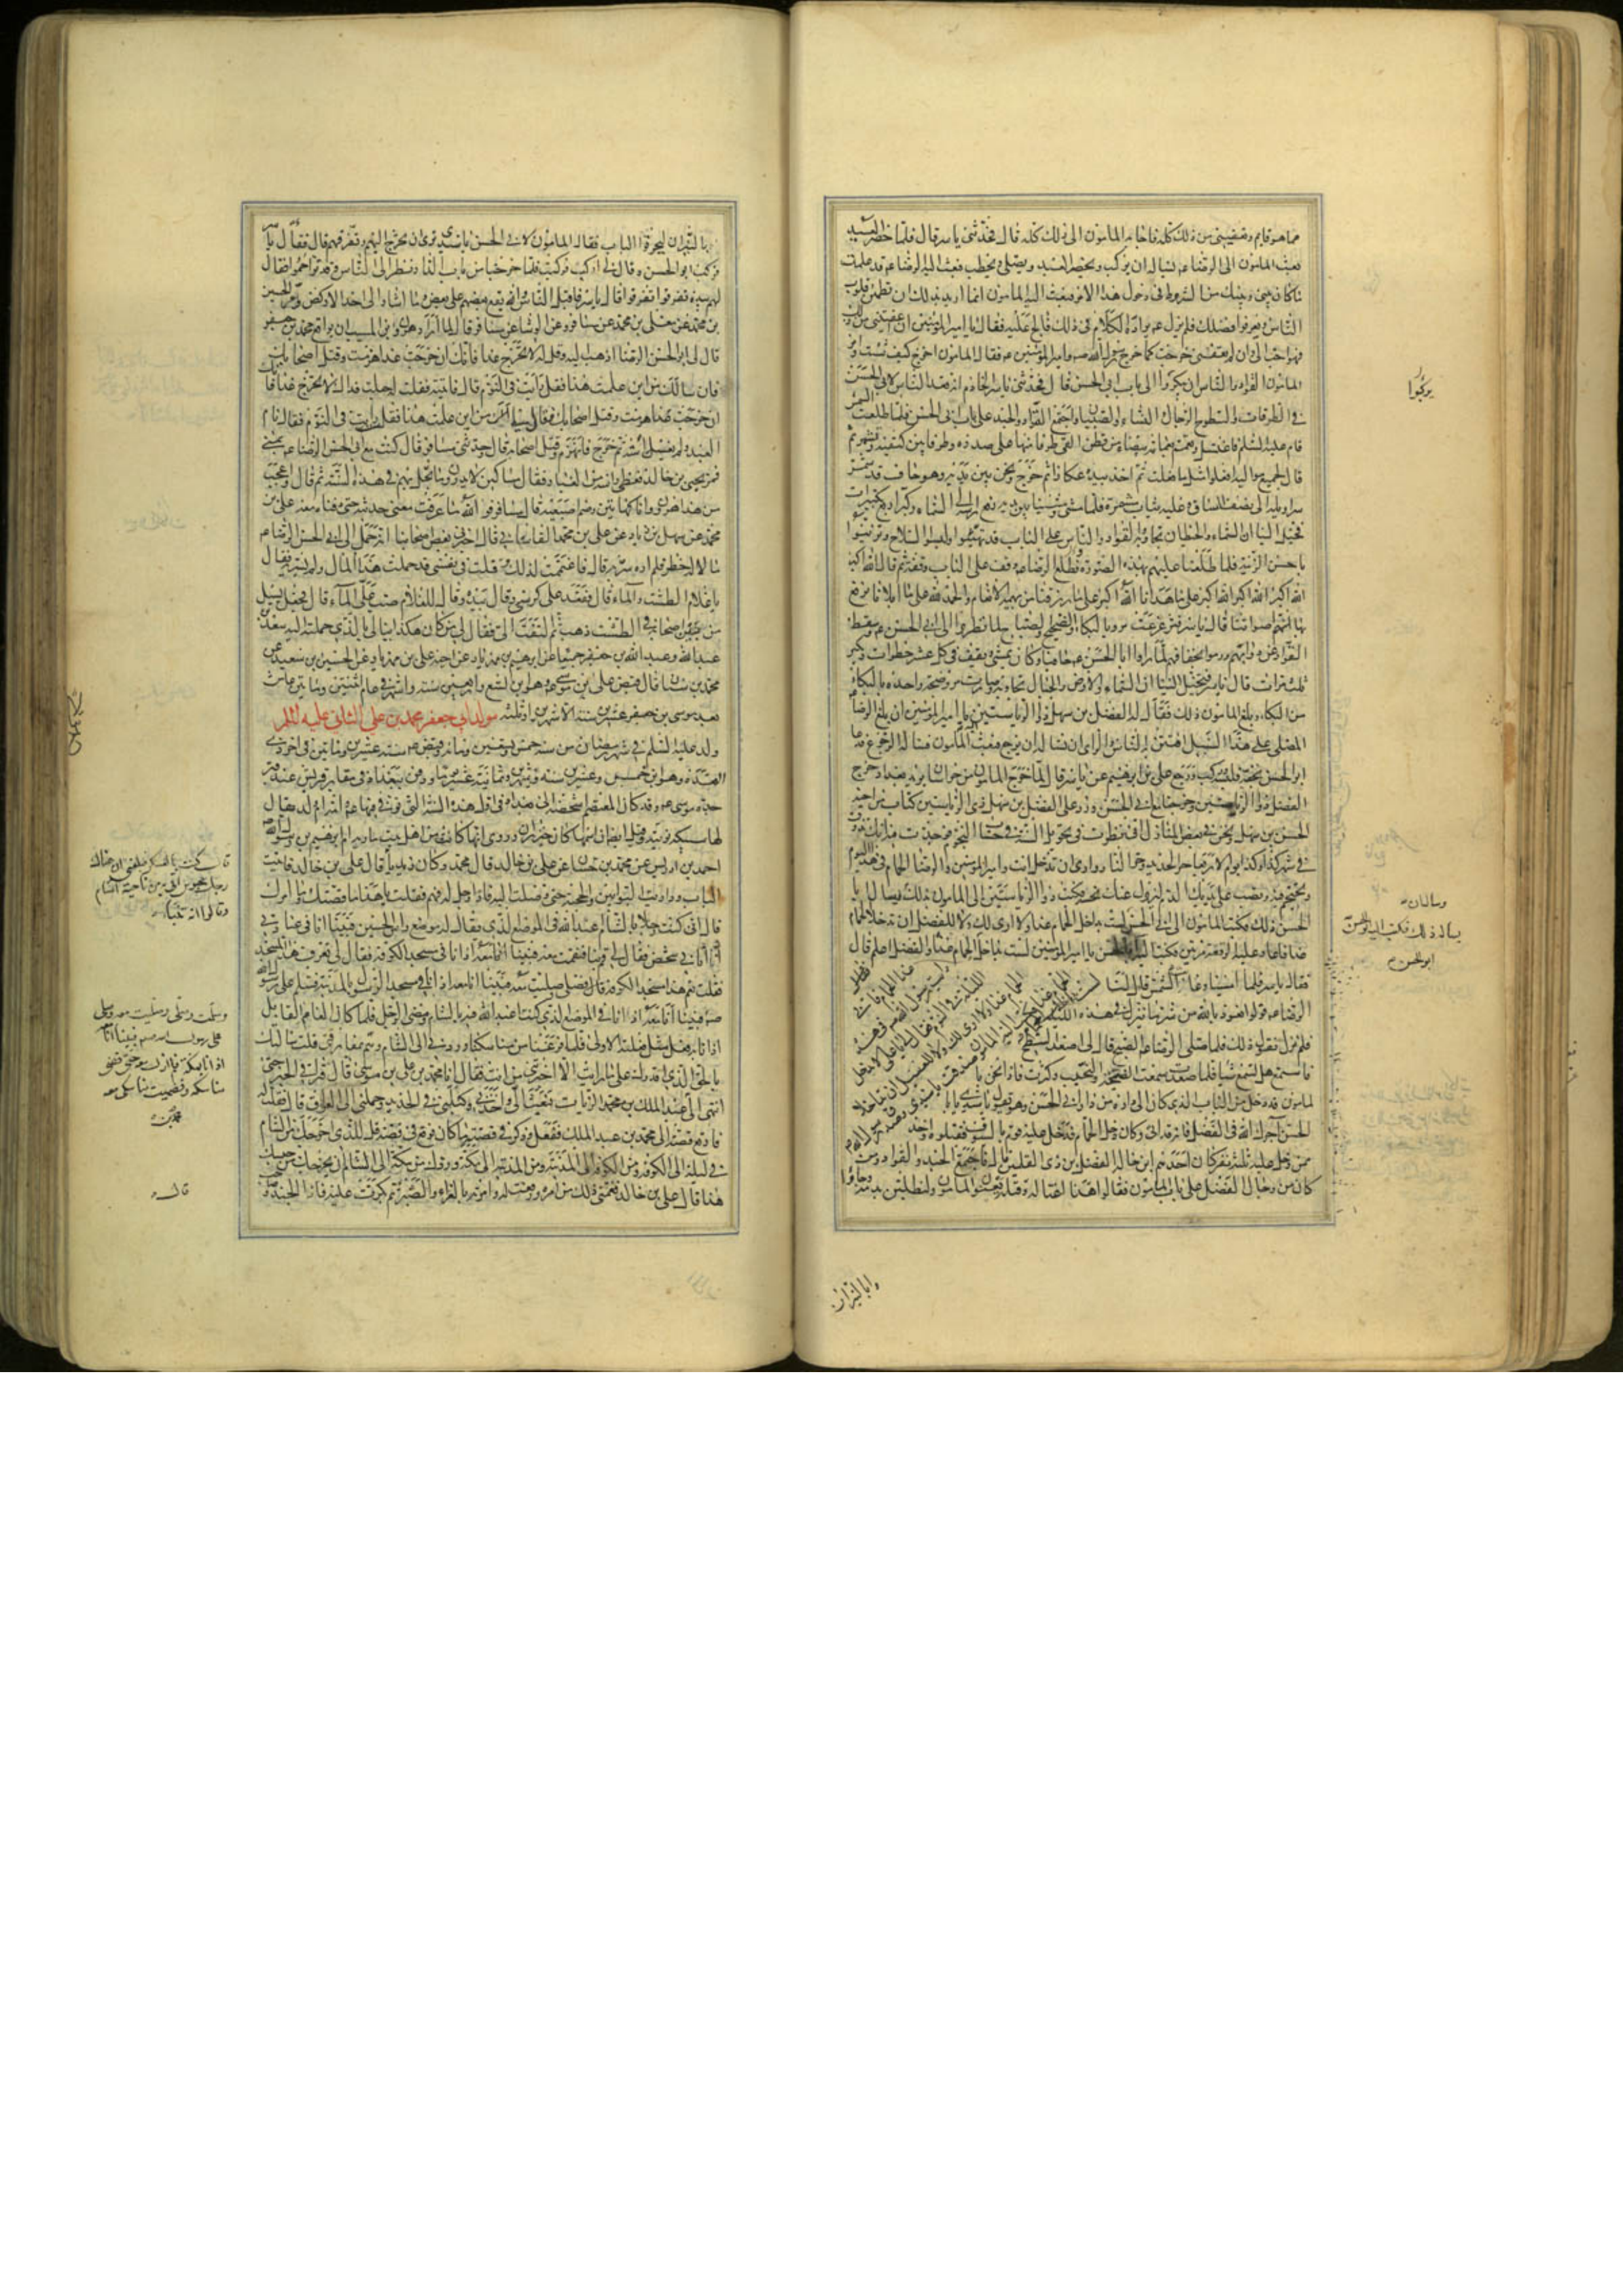 مما هو قايم ويعفيني من ذلك كله فاجابه المامون الى ذلك كله قال فحدثني ياسر قال فلما حضر العيد
بعث المامون الى الرضا عم يساله ان يركب ويحضر العيد ويصلي ويخطب فبعث اليه الرضا عم قد علمت
ما كان بيني وبينك من الشروط في دخول هذا الامر فبعث اليه المامون انما اريد بذلك ان تطمئن قلوب
الناس ويعرفوا فضلك فلم يزل عم يراده الكلام في ذلك فالح عليه فقال يا امير المؤمنين ان عفيتني من ذلك
فهو احب الي وان لم تعفني خرجت كما خرج رسول الله صم وامير المؤمنين عم فقال المامون اخرج كيف شئت وامر
المامون القواد والناس ان يبكروا الى باب ابي الحسن قال فحدثني ياسر الخادم انه قعد الناس لابي الحسن
في الطرقات والسطوح الرجال والنساء والصبيان واجتمع القواد والجند على باب ابي الحسن فلما طلعت الشمس
قام عليه السلم فاغتسل وتعمم بعمامة بيضاء من قطن القى طرفا منها على صدره وطرفا بين كتفيه وتشمر ثم
قال لجميع مواليه افعلوا مثل ما فعلت ثم اخذ بيده عكازا ثم خرج ونحن بين يديه وهو حاف قد شمر
سراويله الى نصف الساق وعليه ثياب مشمرة فلما مشى ومشينا بين يديه رفع راسه الى السماء وكبر اربع تكبيرات
فخيل الينا ان السماء والحيطان تجاوبه والقواد والناس على الباب قد تهيئوا ولبسوا السلاح وتزينوا
باحسن الزينة فلما طلعنا عليهم بهذه الصورة وطلع الرضا عم وقف على الباب وقفة ثم قال الله اكبر
الله اكبر الله اكبر الله اكبر على ما هدانا الله اكبر على ما رزقنا من بهيمة الانعام والحمد لله على ما ابلانا نرفع
بها اصواتنا قال ياسر فتزعزعت مرو بالبكاء والضجيج والصياح لما نظروا الى ابي الحسن عم وسقط
القواد عن دوابهم ورموا بخفافهم لما راوا ابا الحسن عم حافيا وكان يمشي ويقف في كل عشر خطوات ويكبر
ثلث مرات قال ياسر فتخيل الينا ان السماء والارض والجبال تجاوبه وصارت مرو ضجة واحدة بالبكاء
من البكاء وبلغ المامون ذلك فقال له الفضل بن سهل ذو الرياستين يا امير المؤمنين ان بلغ الرضا
المصلى على هذا السبيل افتتن به الناس والراي ان تساله ان يرجع فبعث اليه المامون فساله الرجوع فدعا
ابو الحسن بخفه فلبسه وركب ورجع علي بن ابرهيم عن ياسر قال لما خرج المامون من خراسان يريد بغداد وخرج
الفضل ذو الرياستين وخرجنا مع ابي الحسن ورد على الفضل بن سهل ذي الرياستين كتاب من اخيه
الحسن بن سهل ونحن في بعض المنازل اني نظرت في تحويل السنة في حساب النجوم فوجدت فيه انك تذوق
في شهر كذا وكذا يوم الاربعاء حر الحديد وحر النار وارى ان تدخل انت وامير المؤمنين والرضا الحمام في هذا اليوم
وتحتجم فيه وتصب على يديك الدم ليزول عنك نحسه فكتب ذو الرياستين الى المامون بذلك وساله ان يسال ابا
الحسن ذلك فكتب المامون الى ابي الحسن لست بداخل الحمام غدا ولا ارى لك ولا للفضل ان تدخلا الحمام
غدا فاعاد عليه الرقعة مرتين فكتب اليه ابو الحسن يا امير المؤمنين لست بداخل الحمام غدا والفضل اعلم قال
فقال ياسر فلما امسينا وغابت الشمس قال لنا
الرضا عم قولوا نعوذ بالله من شر ما ينزل في هذه الليلة
فلم نزل نقول ذلك فلما صلى الرضا عم الصبح قال لي اصعد السطح
فاستمع هل تسمع شيا فلما صعدت سمعت الضجة والنحيب وكثرت فاذا نحن با
لمامون قد دخل من الباب الذي كان الى داره من دار ابي الحسن وهو يقول يا سيدي يا ابا
الحسن آجرك الله في الفضل فانه قد ابى وكان دخل الحمام فدخل عليه قوم بالسيوف فقتلوه واخذ
ممن دخل عليه ثلثة نفر كان احدهم ابن خاله الفضل بن ذي القلمين قال فاجتمع الجند والقواد ومن
كان من رجال الفضل على باب المامون فقالوا هذا اغتاله وقتله يعنون المامون ولنطلبن بدمه وجاؤا
يركبوا
وساله ان
يساله ذلك فكتب اليه ابو الحسن
ابو الحسن
وابالنيران
بالنيران ليحرقوا الباب فقال المامون لابي الحسن يا سيدي ترى ان تخرج اليهم وتفرقهم قال فقال ياسر
فركب ابو الحسن وقال لي اركب فركبت فلما خرجنا من باب الدار نظر الى الناس وقد تزاحموا فقال
لهم بيده تفرقوا تفرقوا قال ياسر فاقبل الناس والله يقع بعضهم على بعض وما اشار الى احد الا ركض ومر الحسين
بن محمد عن معلى بن محمد عن مسافر وعن الوشا عن مسافر قال لما اراد هرون بن المسيب ان يواقع محمد بن جعفر
قال لي ابو الحسن الرضا اذهب اليه وقل له لا تخرج غدا فانك ان خرجت غدا هزمت وقتل اصحابك
فان سالك من اين علمت هذا فقل رايت في النوم قال فاتيته فقلت له جعلت فداك لا تخرج غدا فانك
ان خرجت غدا هزمت وقتل اصحابك فقال لي من اين علمت هذا فقلت رايت في النوم فقال نام
العبد ولم يغسل استه ثم خرج فانهزم وقتل اصحابه قال وحدثني مسافر قال كنت مع ابي الحسن الرضا عم بمنى
فمر يحيى بن خالد فغطى راسه من الغبار فقال مساكين لا يدرون ما يحل بهم في هذه السنة ثم قال واعجب
من هذا هرون وانا كهاتين وضم اصبعيه قال مسافر فوالله ما عرفت معنى حديثه حتى دفناه معه علي بن
محمد عن سهل بن زياد عن علي بن محمد القاساني قال اخبرني بعض اصحابنا انه حمل الى ابي الحسن الرضا عم
مالا له خطر فلم اره سر به قال فاغتممت لذلك وقلت في نفسي قد حملت هذا المال ولم يسر به فقال
يا غلام الطشت والماء قال فقعد على كرسي وقال بيده وقال للغلام صب علي الماء قال فجعل يسيل
من بين اصابعه في الطشت ذهب ثم التفت الي فقال لي من كان هكذا لا يبالي بالذي حملته اليه سعد بن
عبد الله وعبد الله بن جعفر جميعا عن ابرهيم بن مهزيار عن اخيه علي بن مهزيار عن الحسين بن سعيد عن
محمد بن سنان قال قبض علي بن موسى عم وهو ابن تسع واربعين سنة واشهر في عام اثنتين ومايتين عاش
بعد موسى بن جعفر عشرين سنة الا شهرين او ثلثة مولد ابي جعفر محمد بن علي الثاني عليه السلم
ولد عليه السلم في شهر رمضان من سنة خمس وتسعين وماية وقبض عم سنة عشرين ومايتين في اخر ذي
القعدة وهو ابن خمس وعشرين سنة وشهرين وثمانية عشر يوما ودفن ببغداد في مقابر قريش عند قبر
جده موسى عم وقد كان المعتصم اشخصه الى بغداد في اول هذه السنة التي توفي فيها عم وامه ام ولد يقال
لها سبيكة نوبية وقيل ايضا ان اسمها كان خيزران وروي انها كانت من اهل بيت مارية ام ابرهيم بن رسول الله
احمد بن ادريس عن محمد بن حسان عن علي بن خالد قال محمد وكان زيديا قال علي بن خالد فاتيت
الباب وداريت البوابين والحجبة حتى وصلت اليه فاذا رجل له فهم فقلت يا هذا ما قصتك وما امرك
قال اني كنت رجلا بالشام اعبد الله في الموضع الذي يقال له موضع راس الحسين فبينا انا في عبادتي
اذ اتاني شخص فقال لي قم بنا فقمت معه فبينا انا معه اذا انا في مسجد الكوفة فقال لي تعرف هذا المسجد
فقلت نعم هذا مسجد الكوفة قال فصلى وصليت معه فبينا انا معه اذ انا في مسجد الرسول بالمدينة فسلم على رسول الله
صم فبينا انا معه اذا انا في الموضع الذي كنت اعبد الله فيه بالشام ومضى الرجل فلما كان العام القابل
اذا انا به فعل مثل فعلته الاولى فلما فرغنا من مناسكنا وردني الى الشام وهم بمفارقتي قلت سالتك
بالحق الذي اقدرك على ما رايت الا اخبرتني من انت فقال انا محمد بن علي بن موسى قال فتراقى الخبر حتى
انتهى الى محمد بن عبد الملك الزيات فبعث الي واخذني وكبلني في الحديد وحملني الى العراق قال فقلت له
فارفع قصة الى محمد بن عبد الملك ففعل وذكر في قصته ما كان فوقع في قصته قل للذي اخرجك من الشام
في ليلة الى الكوفة ومن الكوفة الى المدينة ومن المدينة الى مكة وردك من مكة الى الشام ان يخرجك من حبسك
هذا قال علي بن خالد فغمني ذلك من امره ورققت له وامرته بالعزاء والصبر ثم بكرت عليه فاذا الجند وصاحب
قال كنت بالعسكر فبلغني ان هناك
رجل محبوس اتي به من ناحية الشام
وقالوا انه تنبأ
وسلمت وصلى وصليت معه وصلى
على رسول الله صم فبينا انا معه
اذا انا بمكة فلم ازل معه حتى قضى
مناسكه وقضيت مناسكي معه
قال